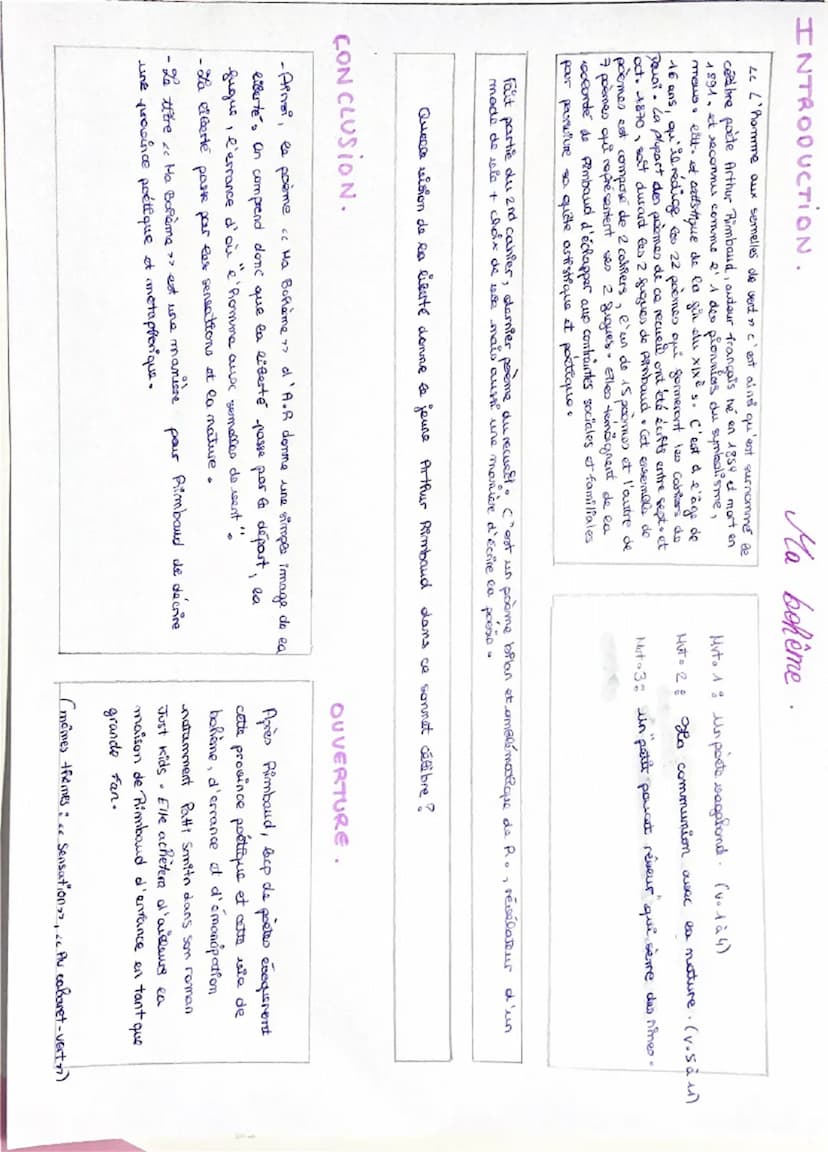 Ma bohême.
INTRODUCTION.
<< L'homme aux semelles de vent >> c'est ainsi qu'est surnommé le
célèbre poète Arthur Rimbaud, auteur français né en 1854 et mort en
1891. et reconnu comme l'1 des pionniers du symbolisme,
mouv. litt. et artistique de la fin du XIXè s. C'est à l'âge de
16 ans, qu'il rédige les 22 poèmes qui formeront les Cahiers de
Douai. La plupart des poèmes de ce recueil ont été écrits entre sept. et
oct. 1870, soit durant les 2 fugues de Rimbaud. Cet ensemble de
poèmes est composé de 2 cahiers, l'un de 15 poèmes et l'autre de
7 poèmes qui représentent ses 2 fugues. Elles témoignent de la
volonté de Rimbaud d'échapper aux contraintes sociales et familiales
par poursuivre sa quête artistique et poétique.
Mvt. 1 : un poète vagabond. (v. 1 à 4)
Mvt. 2 : Ma communion avec la nature. (v. 5 à 11)
Mvt. 3 : un "petit poucet rêveur" qui sème des rimes.
Fait partie du 2nd cahier, dernier poème du recueil. C'est un poème bilan et emblématique de R., révélateur d'un
mode de vie + choix de vie mais aussi une manière d'écrire la poésie.
Quelle vision de la liberté donne le jeune Arthur Rimbaud dans ce sonnet célèbre ?
CONCLUSION.
- Ainsi, le poème << Ma Bohème >> d'A.R donne une simple image de la
liberté. On comprend donc que la liberté passe par le départ, la
fugue, l'errance d'où "l'homme aux semelles de vent".
- La liberté passe par les sensations et la nature.
- Le titre << Ma Bohème >> est une manière pour Rimbaud de décrire
une province poétique et métaphorique.
OUVERTURE.
Après Rimbaud, bcp de poètes évoqueront
cette province poétique et cette vie de
bohème, d'errance et d'émancipation
notamment Patti Smith dans son roman
Just Kids. Elle achètera d'ailleurs la
maison de Rimbaud d'enfance en tant que
grande fan.
(mêmes thèmes : << Sensation >>, << Au cabaret-vert >>)